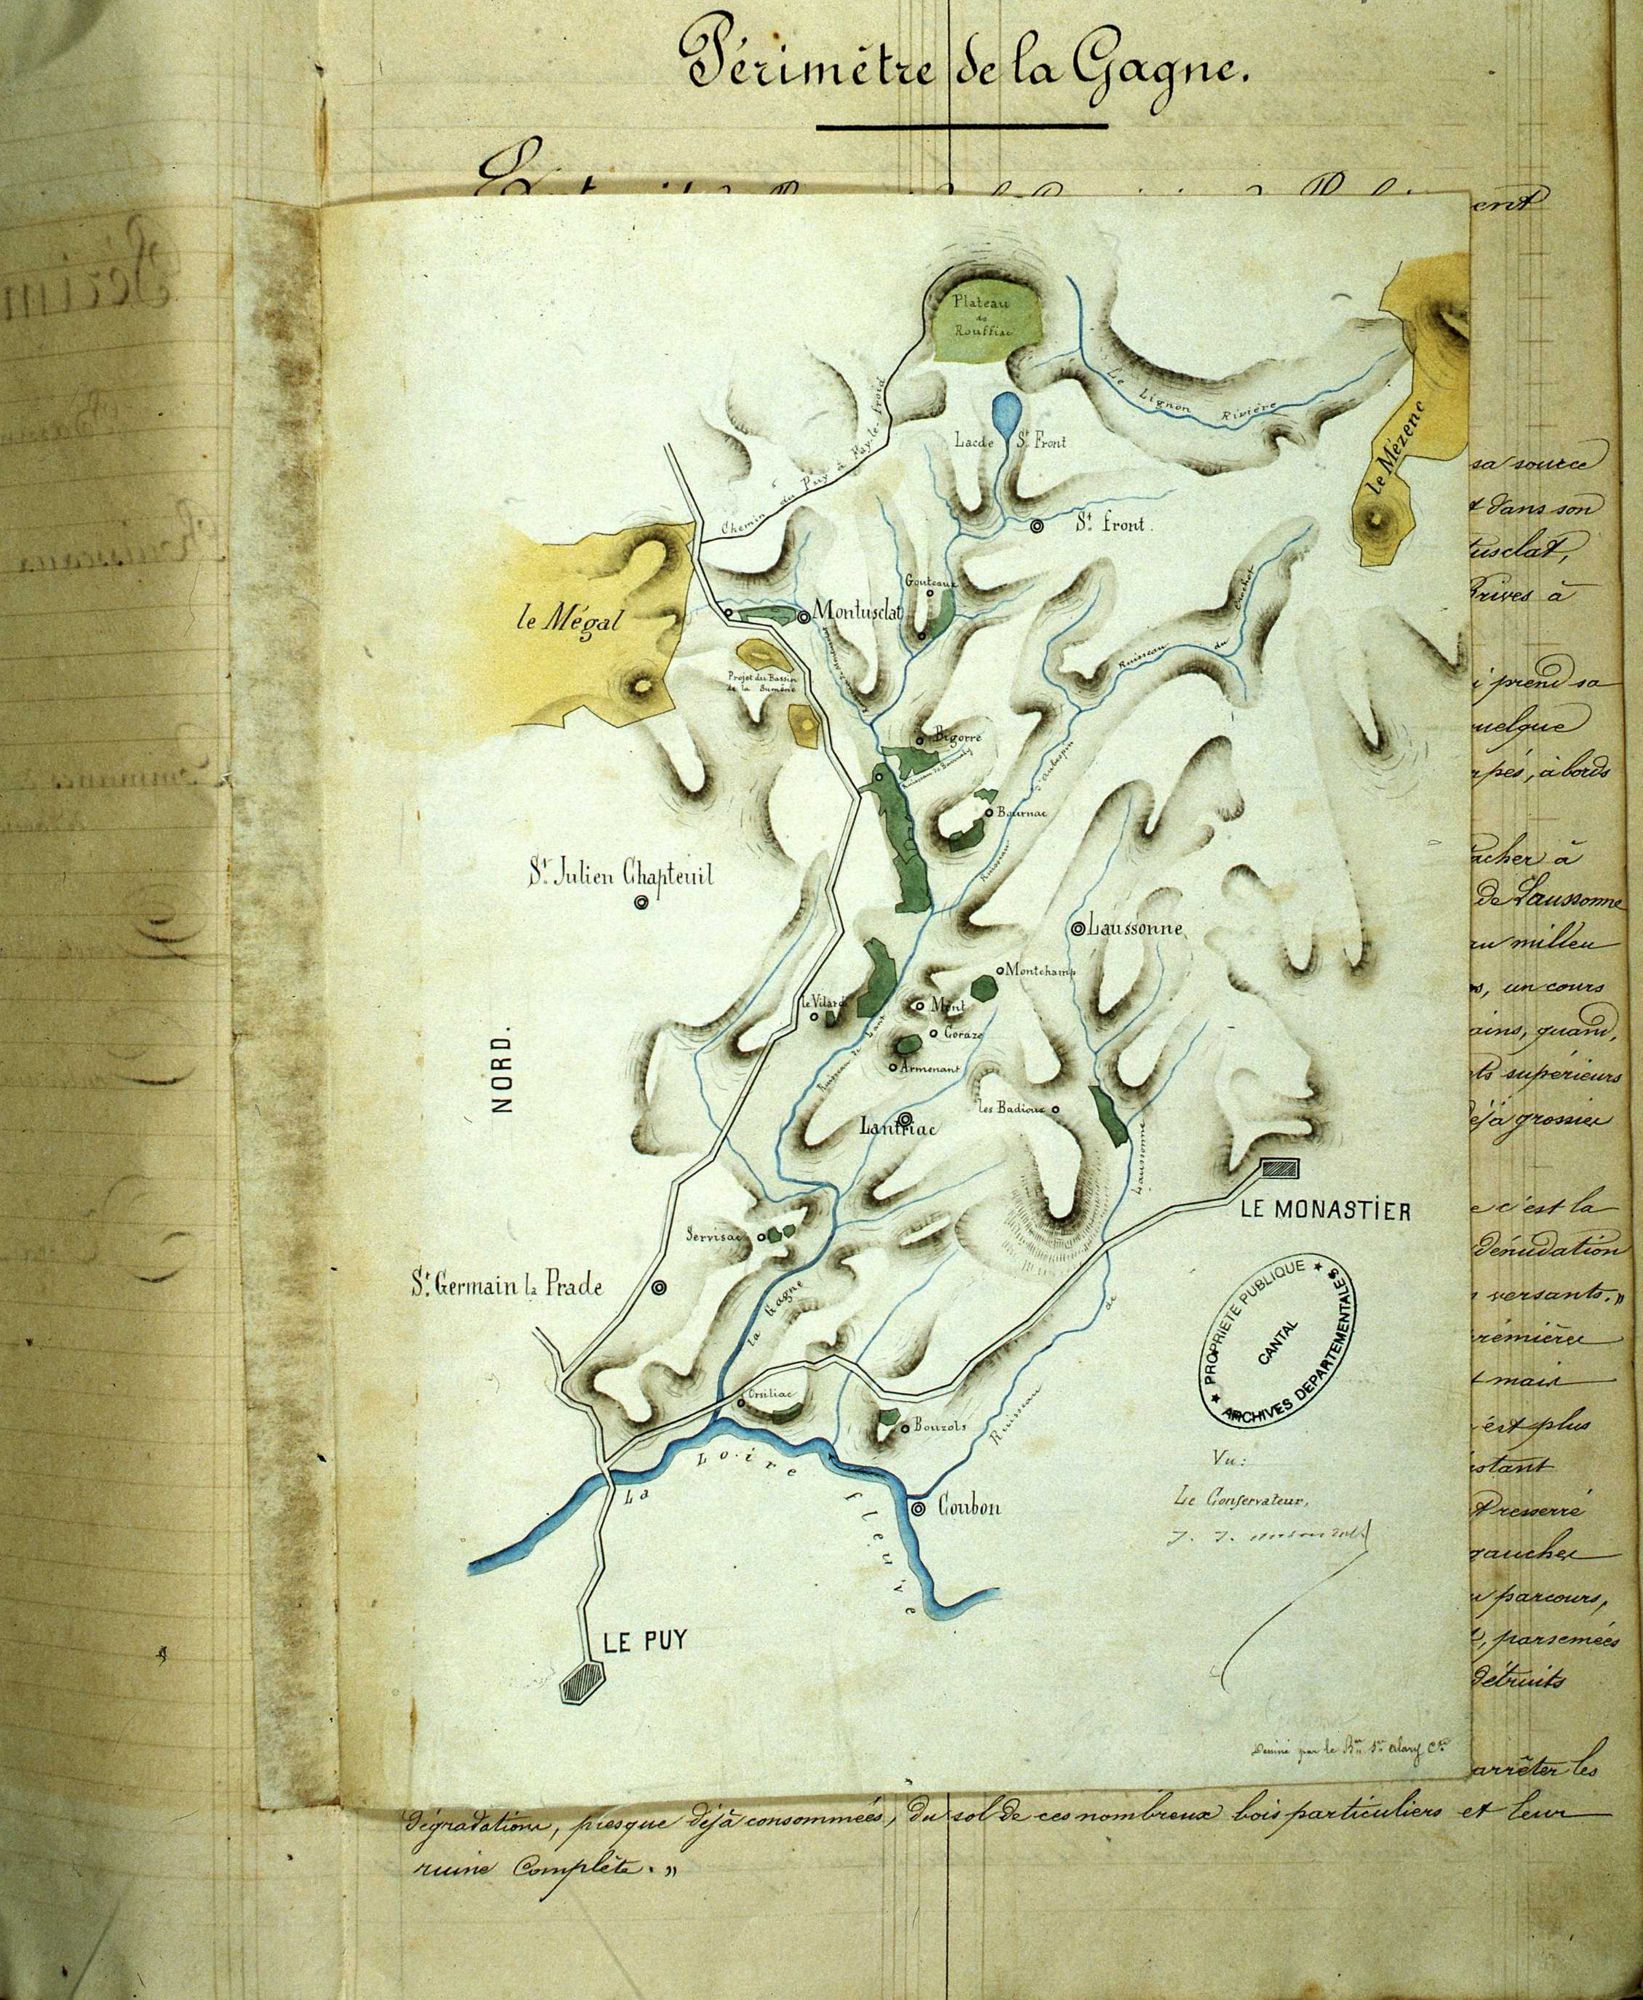 Périmètre de la Gagne.
ent
Plateau
de
Rouffiac
Le Lignon Rivière
le Mézenc
Lac de St. Front
Chemin du Puy à Fay-le-froid
St. front.
le Mégal
Gouteaux
Montusclat
Projet du Bassin
de la Sumène
Ruisseau du Crouhet
Bigorre
Ruisseau d'Aubespin
Bournac
St. Julien Chapteuil
Laussonne
Montchamp
le Vilard
Mont
Coraze
Ruisseau de Laus
Armenant
NORD.
les Badioux
Lantriac
LE MONASTIER
Servisac
St. Germain la Prade
la Gagne
Ruisseau de Laussonne
Orsiliac
Bouzols
La Loire fleuve
Coubon
LE PUY
PROPRIETE PUBLIQUE
CANTAL
ARCHIVES DEPARTEMENTALES
Vu:
Le Conservateur,
Dessiné par le
sa source
t dans son
tusclat,
Brives à
i prend sa
quelque
rpés, à bords
tacher à
de Laussonne
au milieu
s, un cours
ains, quand,
ts supérieurs
déjà grossie
e c'est la
dénudation
n versants.»
première
t mais
est plus
istant
t resserré
gauches
u parcours,
t, parsemées
détruits
arrêter les
dégradations, presque déjà consommées, du sol de ces nombreux bois particuliers et leur
ruine complète.»